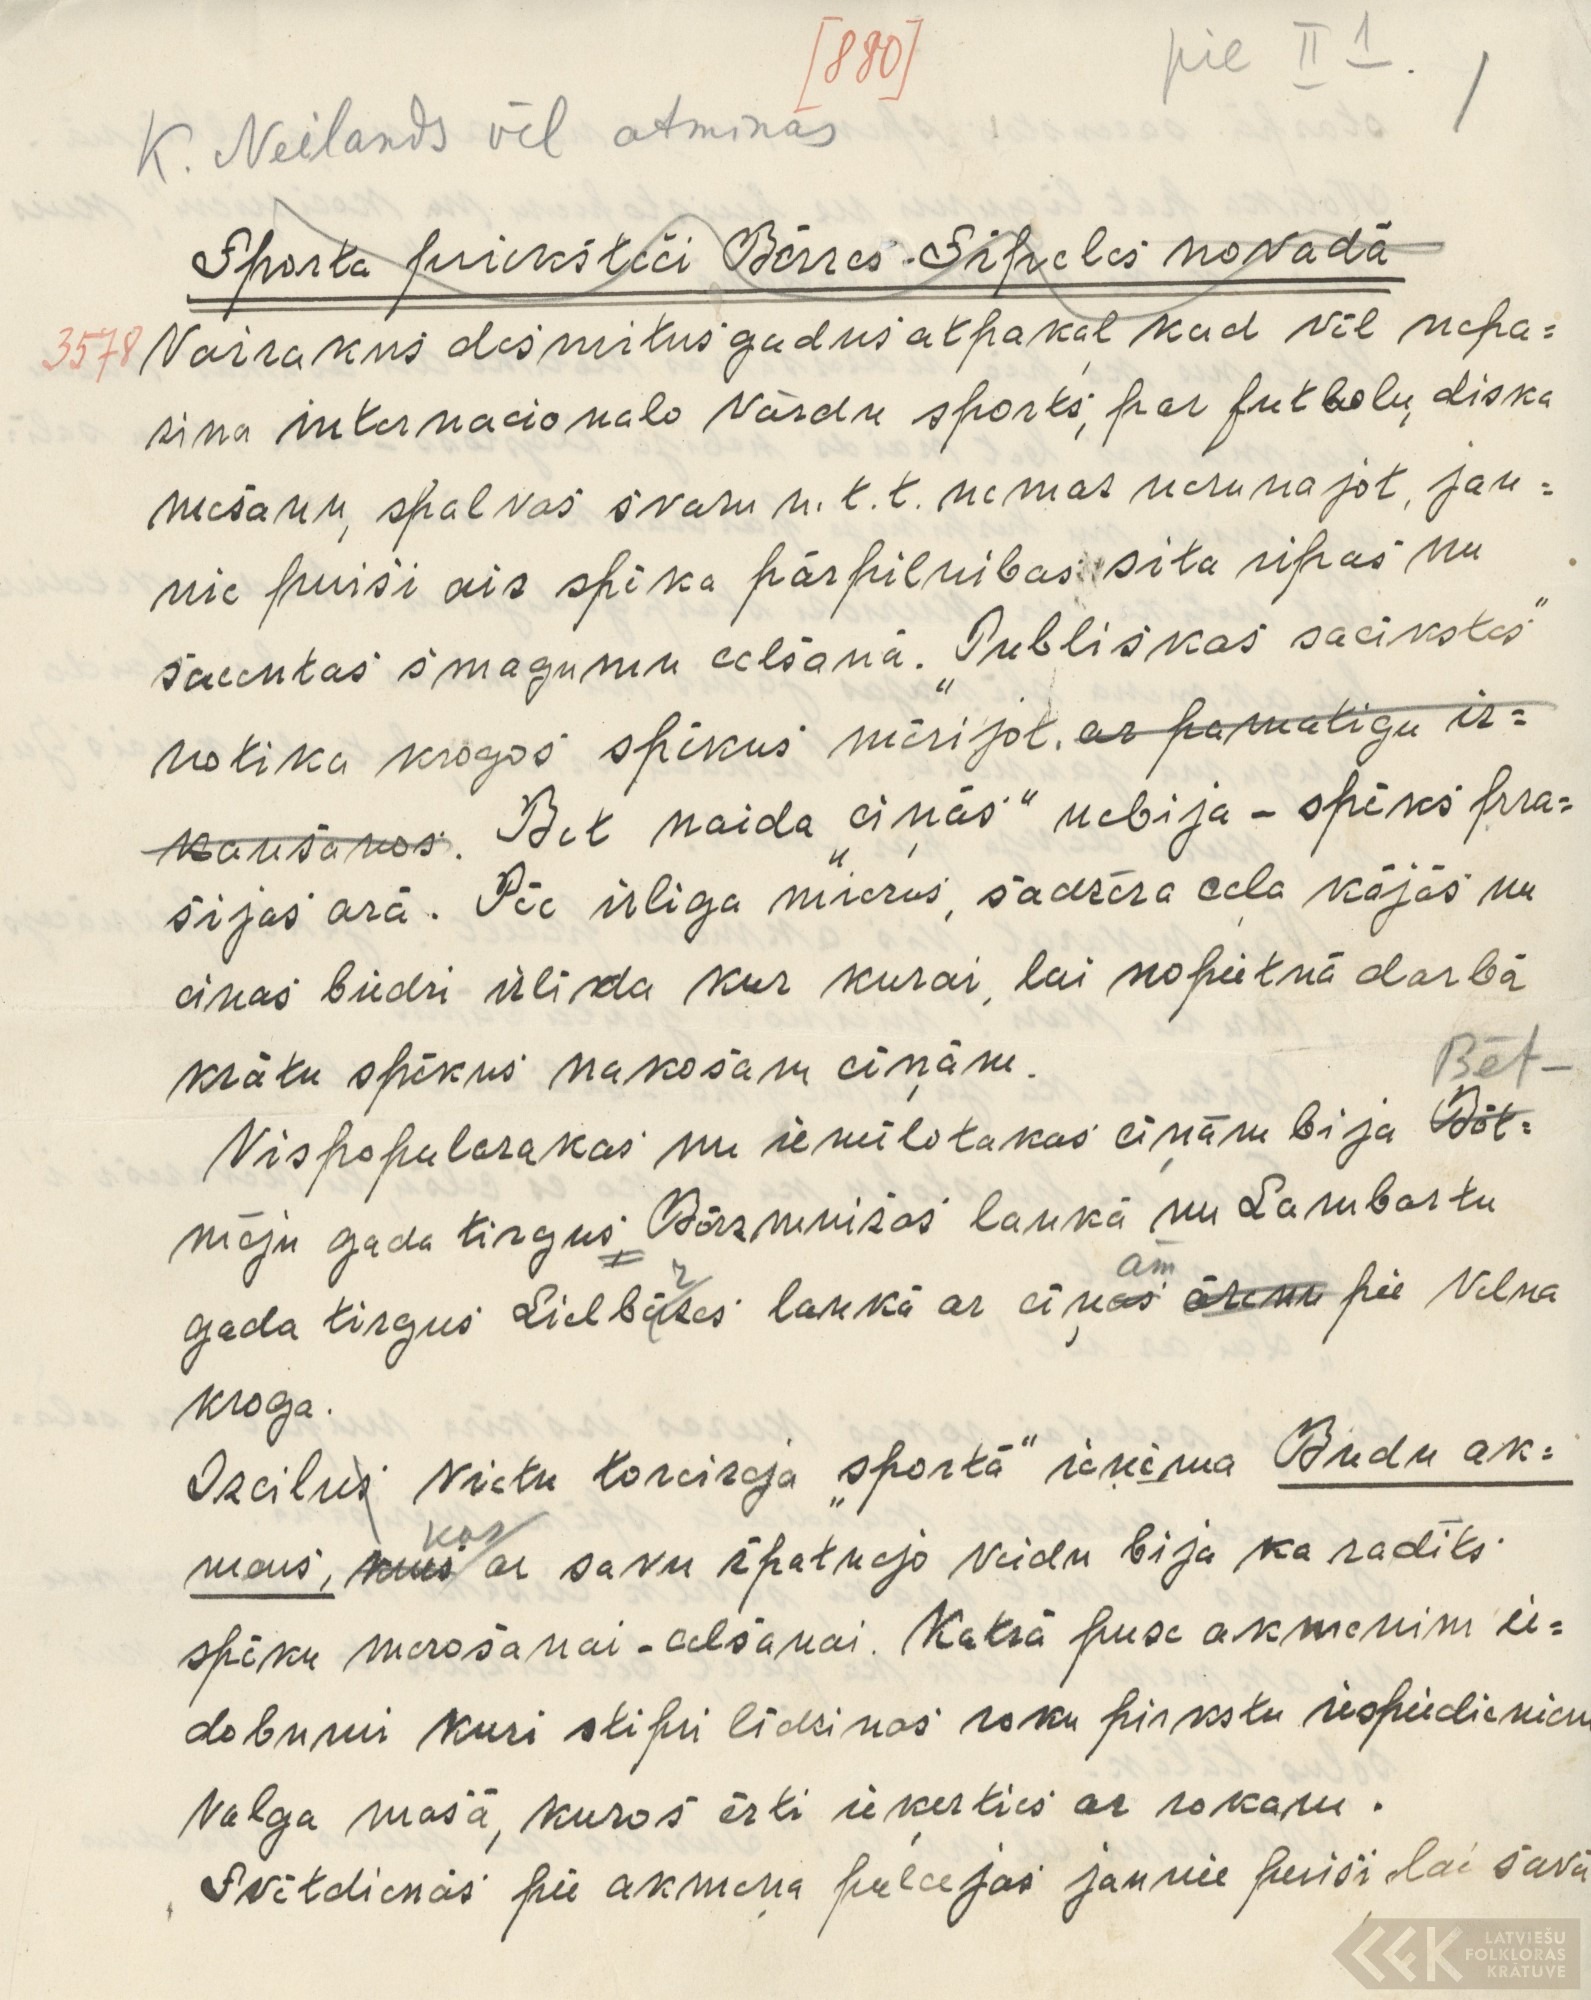 [880]
pie II 1. /
K. Neilands vēl atminās
Sporta priekšteči Bērzes-Sīpeles novadā
3578 Vairakus desmitus gadus atpakaļ kad vēl nepa=
zina internacionalo vārdu sports, par futbolu, diska
mešanu, spalvas svaru u. t. t. nemaz nerunajot, jau=
nie puiši aiz spēka pārpilnibas sita ripas un
sacentas smagumu celšanā. "Publiskas sacikstes"
notika krogos spēkus mērijot. ar pamatigu iz=
kaušanos. Bet naida "ciņās" nebija - spēks pra=
sijas arā. Pēc izliga mierus, sadzēra ceļa kājās un
cinas biedri izlida kur kurai, lai nopietnā darbā
krātu spēkus nakošam ciņām.
Bēt-
Vispopularakas un iemilotakas ciņām bija Bēt=
mēju gada tirgus Bērzmuižas laukā un Lambartu
ām
gada tirgus Lielbērzes laukā ar ciņas pie Velna
kroga.
Izcilus vietu toreizeja "sportā" ieņēma Budu ak=
kas
mens, kurš ar savu īpatnejo veidu bija ka radīts
spēku merošanai-celšanai. Katrā puse akmenim ie=
dobumi kuri stipri līdzinas roku pirkstu iespiedieniem
valga masā, kuros ērti ieķerties ar rokam.
Svētdienās pie akmeņa pulcejas jaunie puiši lai savā
LATVIEŠU
FOLKLORAS
KRĀTUVE